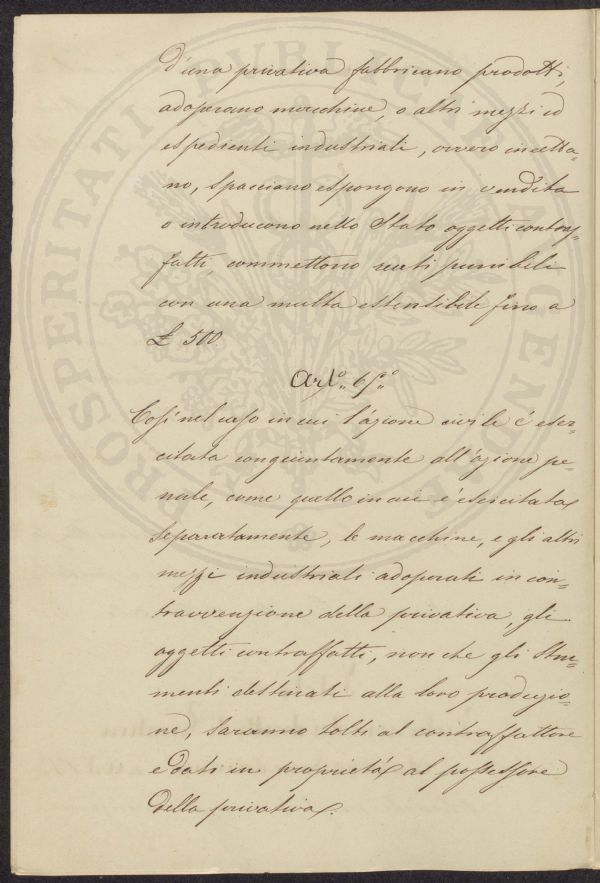 d'una privativa fabbricano prodotti,
adoperano macchine, o altri mezzi ed
espedienti industriali, ovvero incetta=
no, spacciano espongono in vendita
o introducono nello Stato oggetti contraf=
fatti, commettono reati punibili
con una multa estensibile fino a
£ 500
Art.° 65.°
Così nel caso in cui l'azione civile é eser=
citata congiuntamente all'azione pe=
nale, come quello in cui é esercitata
separatamente, le macchine, e gli altri
mezzi industriali adoperati in con=
travvenzione della privativa, gli
oggetti contraffatti, non che gli stru=
menti destinati alla loro produzio=
ne, saranno tolti al contraffattore
e dati in proprietá al possessore
della privativa.
PROSPERITATI PVBLICAE AVGENDAE